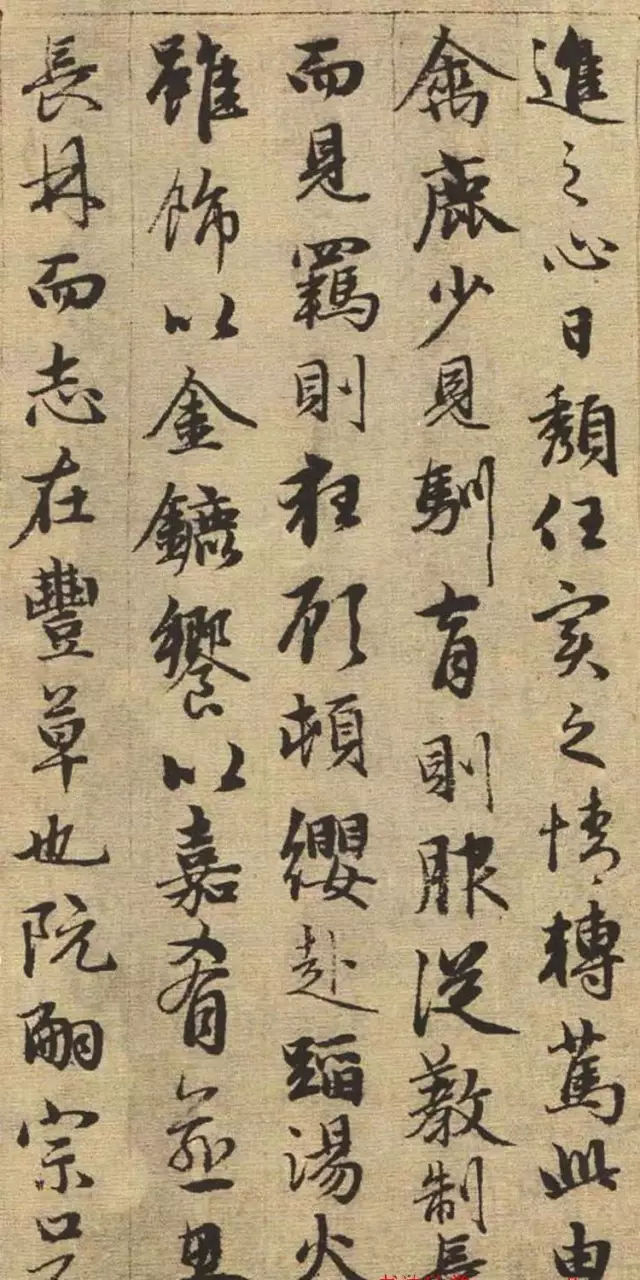 進之心日頹任實之情轉篤此由
禽鹿少見馴育則服從教制長
而見羈則狂顧頓纓赴蹈湯火
雖飾以金鑣饗以嘉肴逾思
長林而志在豐草也阮嗣宗口不